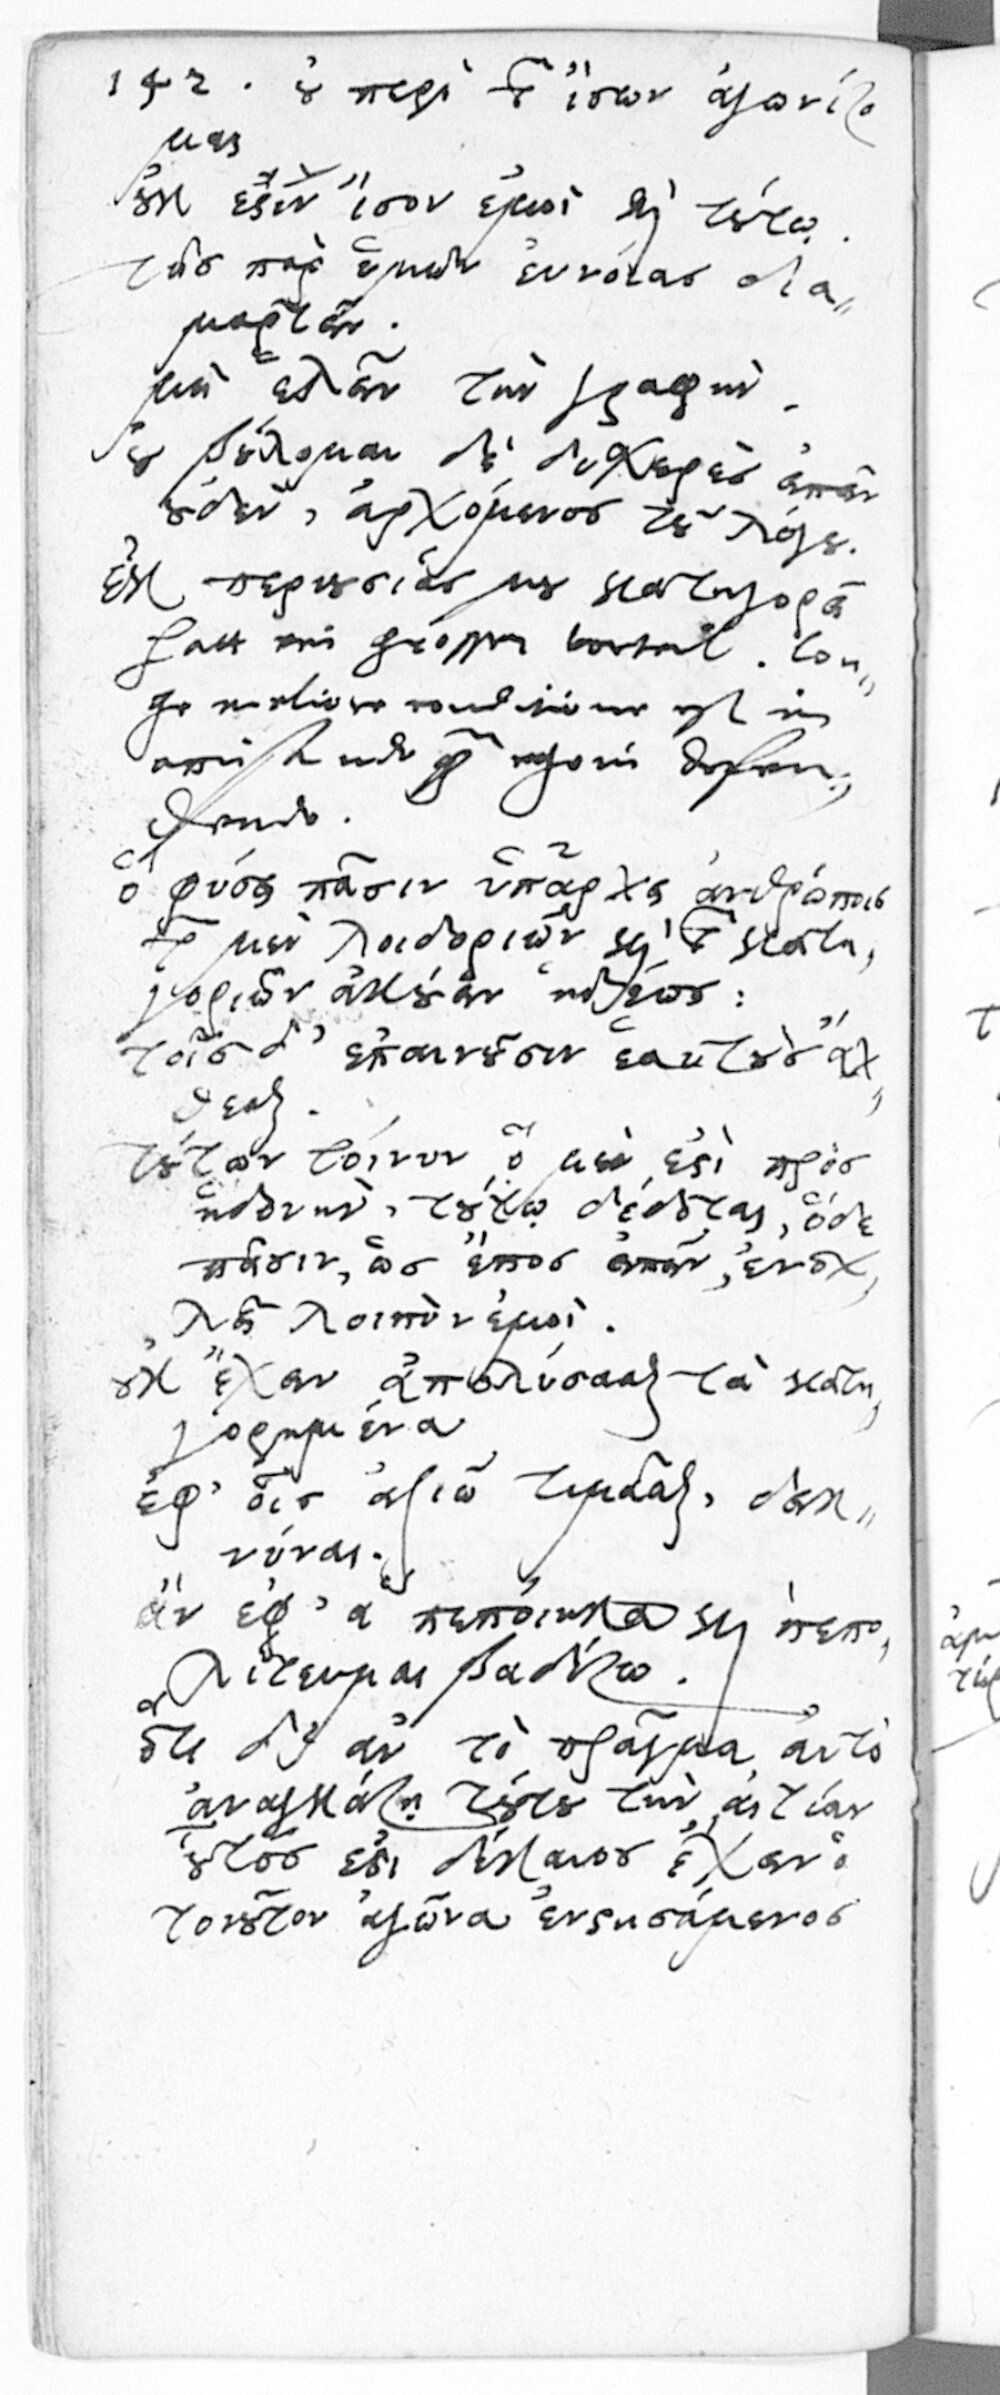 142. οὐ περὶ τῶν ἴσων ἀγωνίζο
μαι
οὐκ ἐστὶν ἴσον ἐμοὶ καὶ τούτῳ.
τῆς παρ' ὑμῶν εὐνοίας δια„
μαρτεῖν.
μὴ ἑλεῖν τὴν γραφὴν.
οὐ βούλομαι δὲ δυσχερὲς εἰπεῖν
οὐδὲν, ἀρχόμενος τοῦ λόγου.
ἐκ περιουσίας μου κατηγορεῖ
hatt ein grossen vorteil. lon„
ge meliore conditione est in
accusando quam ego in defen„
dendo.
ὃ φύσει πᾶσιν ὑπάρχει ἀνθρώποις
τῶν μὲν λοιδοριῶν καὶ τῶν κατη„
γοριῶν ἀκούειν ἡδέως:
τοῖς δ' ἐπαινοῦσιν ἑαυτοὺς ἄχ„
θεσθαι.
τούτων τοίνυν ὃ μὲν ἐστὶ πρὸς
ἡδονὴν, τούτῳ δέδοται, ὃ δὲ
πᾶσιν, ὡς ἔπος εἰπεῖν, ἐνοχ„
λεῖ λοιπὸν ἐμοὶ.
οὐκ ἔχειν ἀπολύσασθαι τὰ κατη„
γορημένα
ἐφ' οἷς ἀξιῶ τιμᾶσθαι, δεικ„
νύναι.
ἂν ἐφ' ἃ πεποίηκα καὶ πεπο„
λίτευμαι βαδίζω.
ὅτι δ' ἂν τὸ πρᾶγμα αὐτὸ
ἀναγκάζῃ τούτου τὴν αἰτίαν
οὗτος ἐστι δίκαιος ἔχειν ὁ
τοιοῦτον ἀγῶνα ἐνστησάμενος